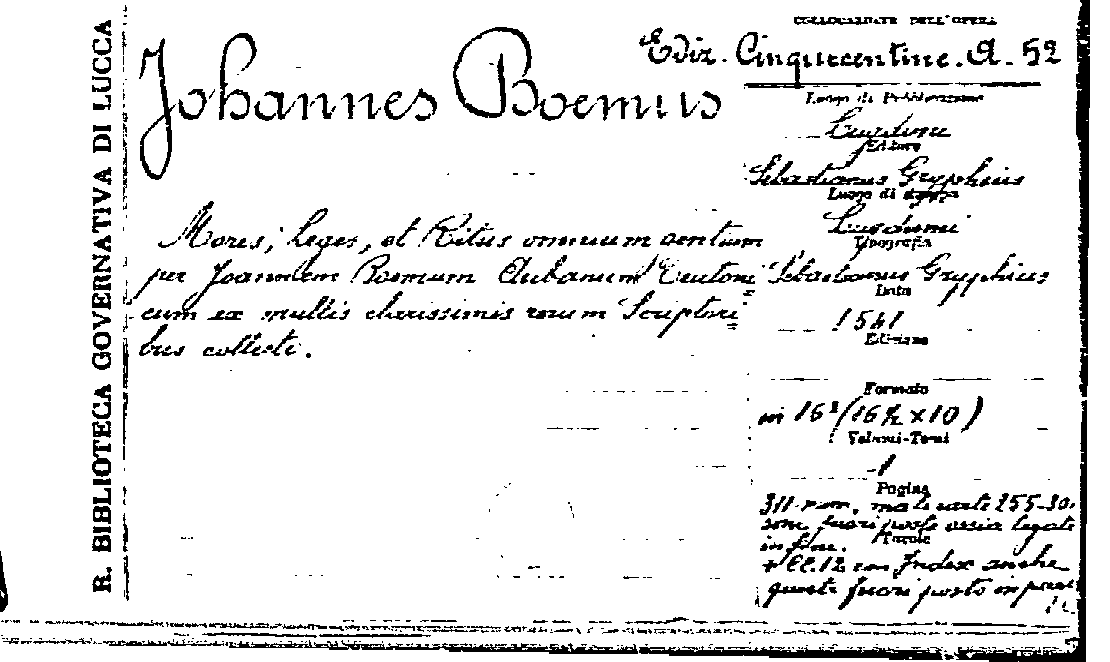 R. BIBLIOTECA GOVERNATIVA DI LUCCA
Johannes Boemus
Mores, leges, et Ritus omnium gentium
per Joannem Boemum Aubanum Teutoni=
cum ex multis clarissimis rerum Scriptori=
bus collecti.
COLLOCAZIONE DELL'OPERA
Ediz. Cinquecentine. A. 52
Luogo di Pubblicazione
Lugduni
Editore
Sebastianus Gryphius
Luogo di stampa
Lugduni
Tipografia
Sebastianus Gryphius
Data
1541
Edizione
Formato
in 16° (16½ x 10)
Volumi-Tomi
1
Pagine
311 num. ma le carte 255-30
sono fuori posto ossia legate
Tavole
in fine.
+ cc. 12 con Index anche
queste fuori posto in